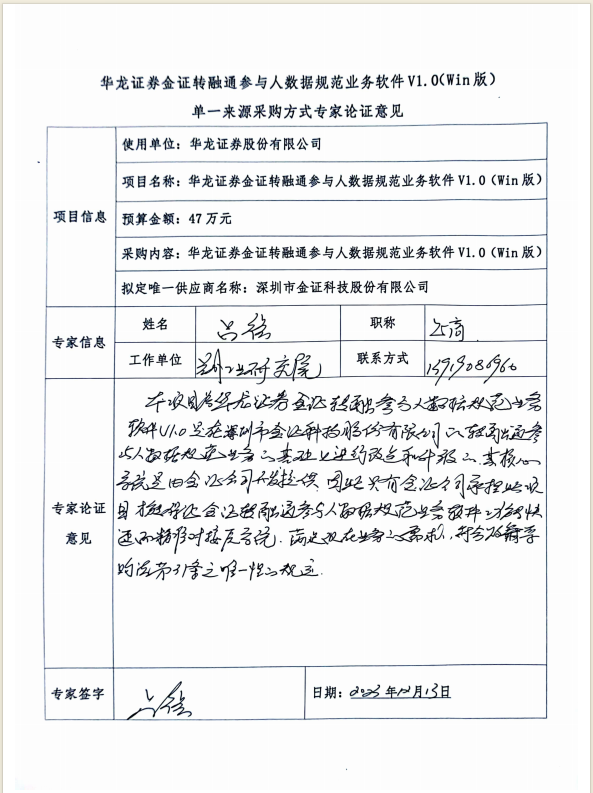 华龙证券金证转融通参与人数据规范业务软件V1.0(Win版)
单一来源采购方式专家论证意见
项目信息
使用单位：华龙证券股份有限公司
项目名称：华龙证券金证转融通参与人数据规范业务软件V1.0（Win版）
预算金额：47万元
采购内容：华龙证券金证转融通参与人数据规范业务软件V1.0（Win版）
拟定唯一供应商名称：深圳市金证科技股份有限公司
专家信息
姓名 职称 正高
工作单位 联系方式
专家论证意见
本项目为华龙证券金证转融参与人数据规范业务
软件V1.0是在深圳市金证科技股份有限公司的转融通参
与人数据规范业务的基础上进行改造和升级的，其核心
系统是由金证公司开发提供，因此只有金证公司承担此项
目才能保证金证转融通参与人数据规范业务软件的快
速而精准对接及系统，满足现在业务的需求，符合政府采
购法第31条之唯一性的规定.
专家签字
日期：2023年12月13日